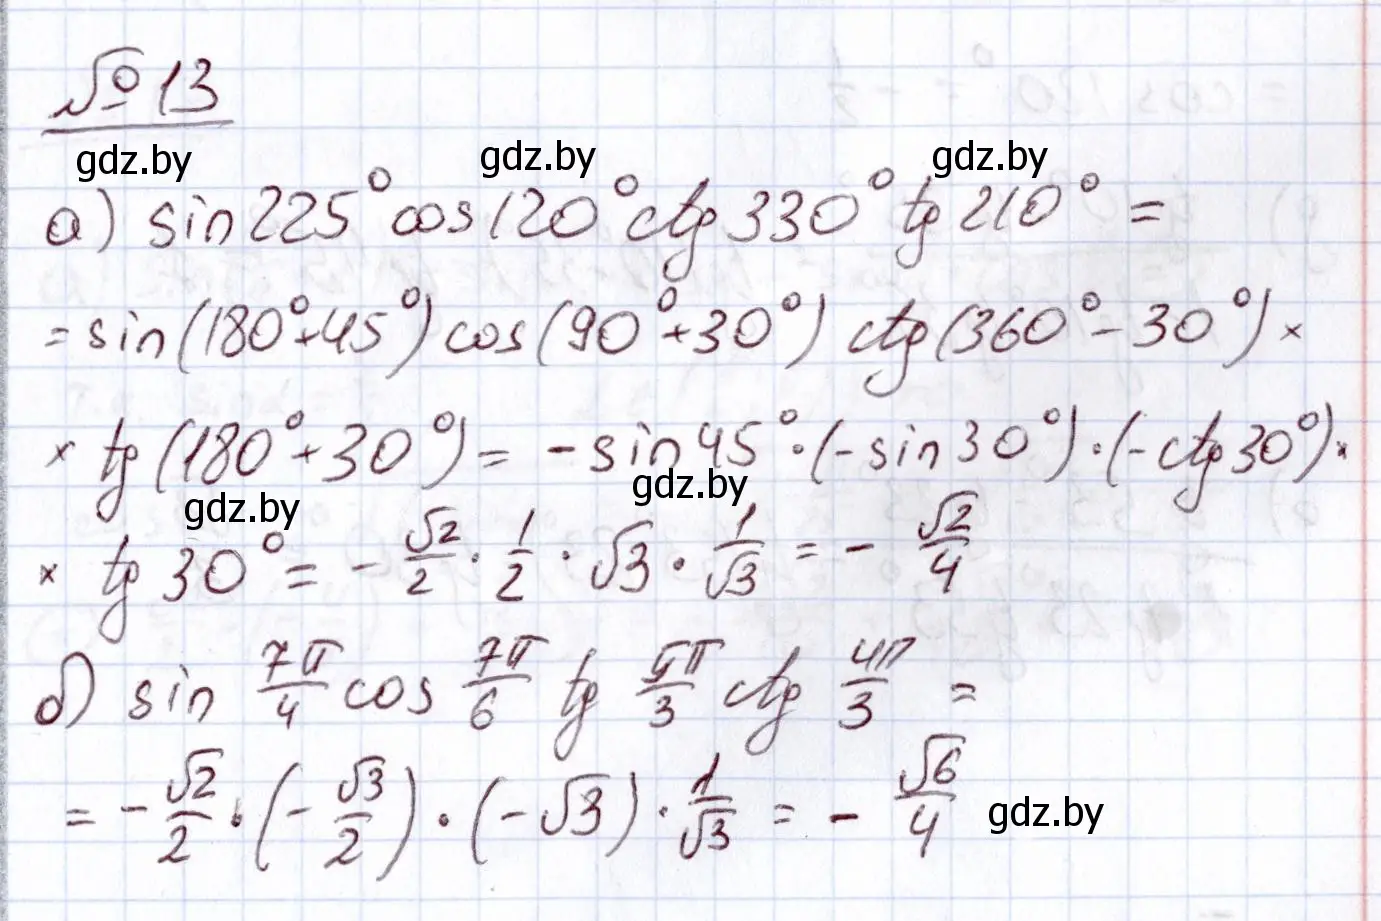 № 13
gdz.by gdz.by gdz.by
а) sin 225° cos 120° ctg 330° tg 210° =
= sin(180°+45°) cos(90°+30°) ctg(360°-30°) ×
× tg(180°+30°) = -sin 45° · (-sin 30°) · (-ctg 30°) ×
gdz.by gdz.by
× tg 30° = - √2/2 · 1/2 · √3 · 1/√3 = - √2/4
б) sin 7π/4 cos 7π/6 tg 5π/3 ctg 4π/3 =
= - √2/2 · (- √3/2) · (-√3) · 1/√3 = - √6/4
gdz.by